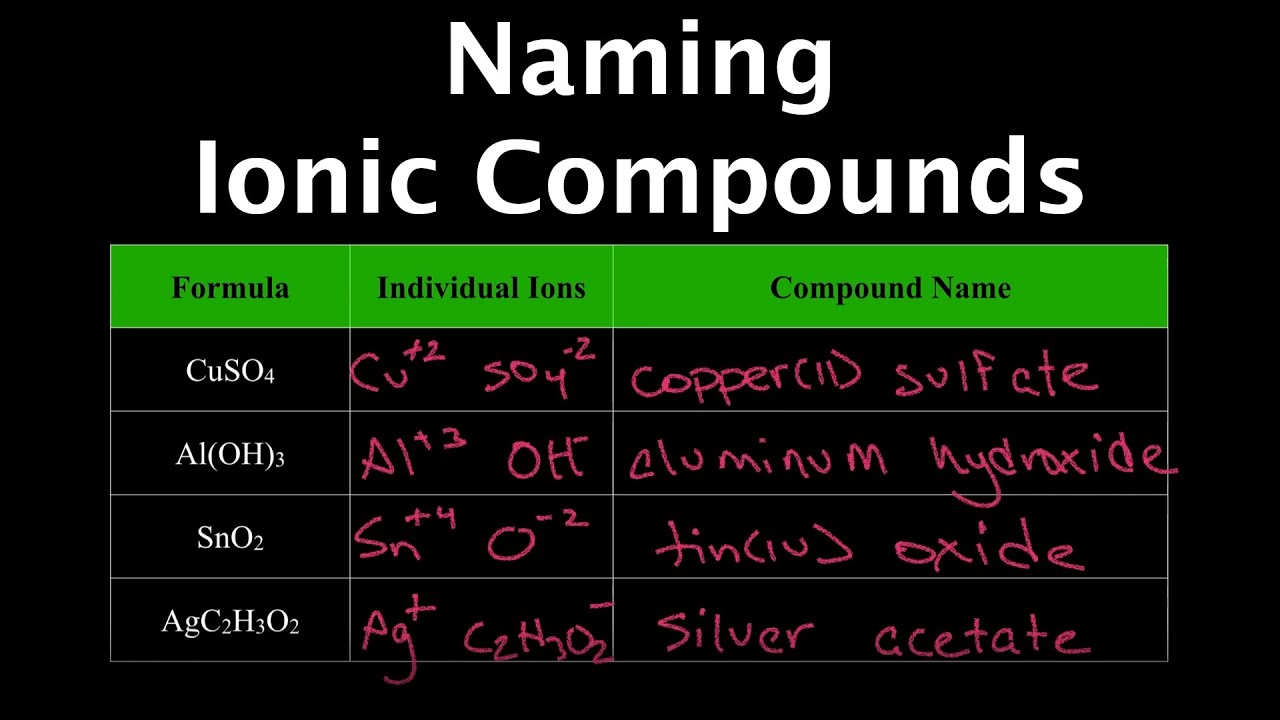 Naming
Ionic Compounds
Formula Individual Ions Compound Name
CuSO₄ Cu⁺² SO₄⁻² copper(II) sulfate
Al(OH)₃ Al⁺³ OH⁻ aluminum hydroxide
SnO₂ Sn⁺⁴ O⁻² tin(IV) oxide
AgC₂H₃O₂ Ag⁺ C₂H₃O₂⁻ silver acetate